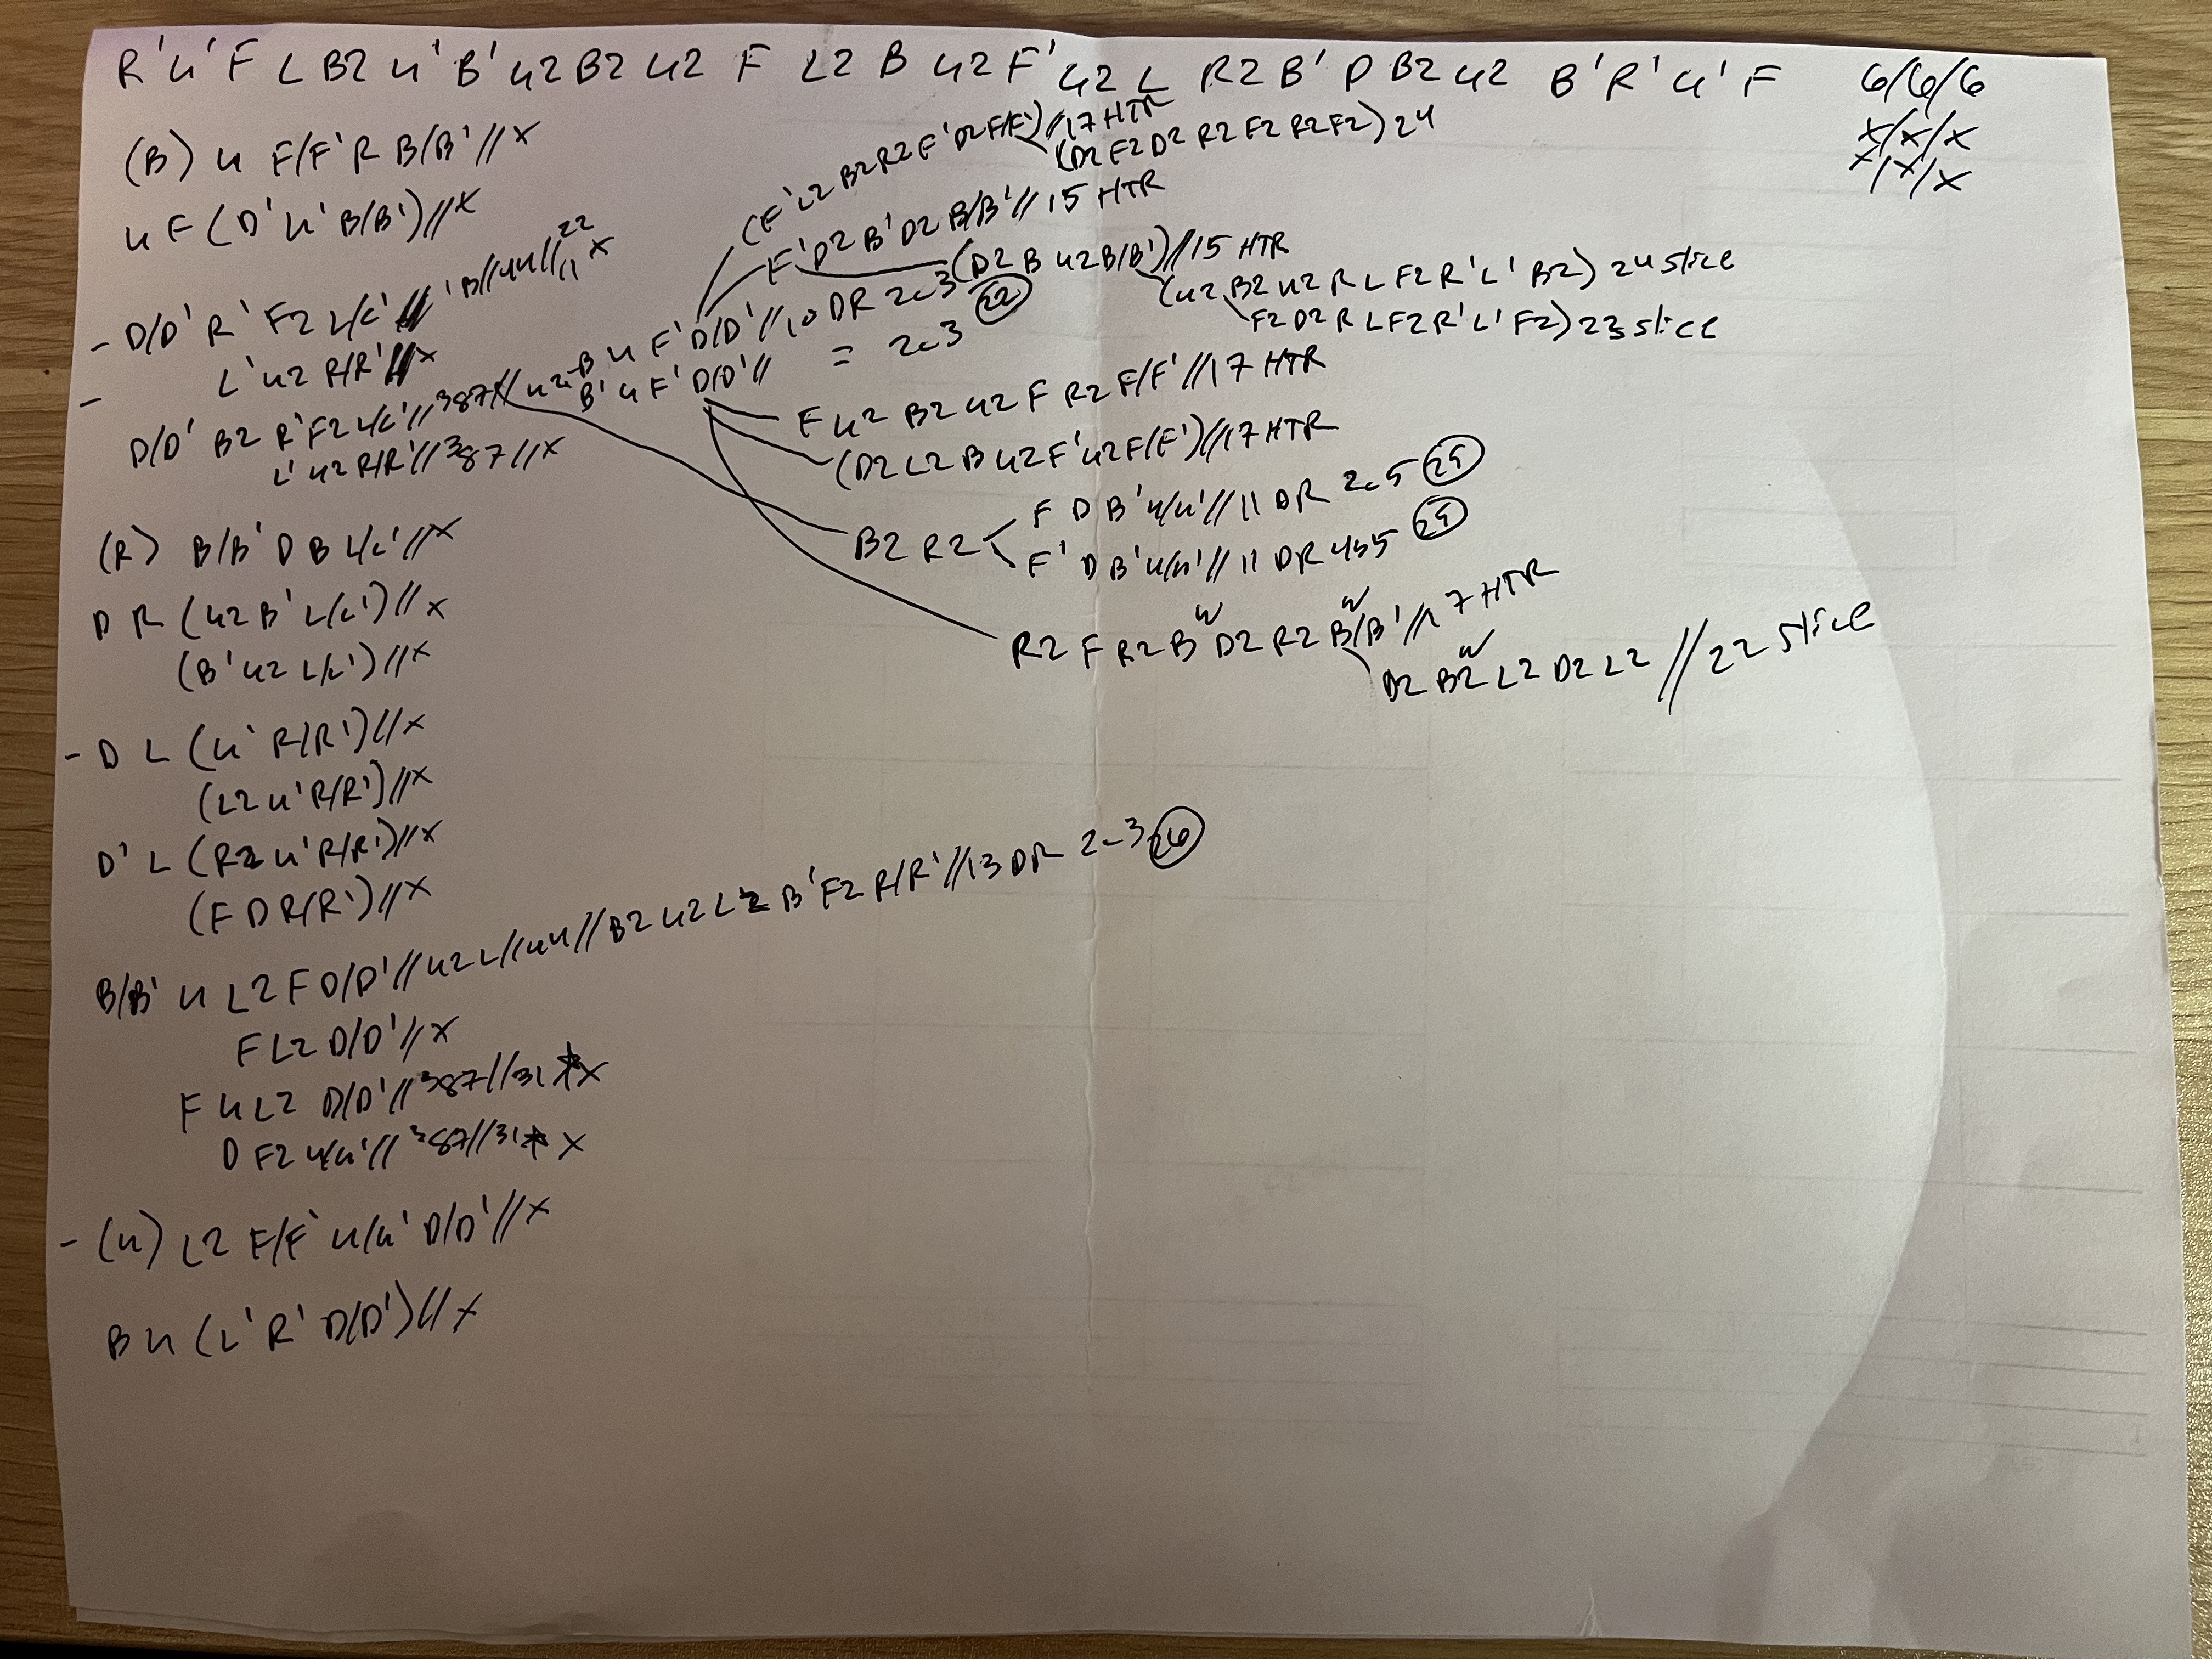 R' U' F L B2 U' B' U2 B2 U2 F L2 B U2 F' U2 L R2 B' D B2 U2 B' R' U' F 6/6/6
x/x/x
x/x/x
(B) U F/F' R B/B' // x
U F (D' U' B/B') // x
(F' L2 B2 R2 F' D2 F/F') // 17 HTR
(D2 F2 D2 R2 F2 R2 F2) 24
F' D2 B' D2 B/B' // 15 HTR
(D2 B U2 B/B') // 15 HTR
(U2 B2 U2 R L F2 R' L' B2) 24 slice
F2 D2 R L F2 R' L' F2) 23 slice
- D/D' R' F2 L/L' // 'B // 4U // 11 x
22
L' U2 R/R' // x
-
D/D' B2 R' F2 L/L' // 387 // U2 B U F' D/D' // 10 DR 2c3
B' U F' D/D' // = 2c3 22
L' U2 R/R' // 387 // x
F U2 B2 U2 F R2 F/F' // 17 HTR
(D2 L2 B U2 F' U2 F/F') // 17 HTR
B2 R2 F D B' U/U' // 11 DR 2c5 25
F' D B' U/U' // 11 DR 4b5 25
(R) B/B' D B L/L' // x
D R (U2 B' L/L') // x
(B' U2 L/L') // x
R2 F R2 B w D2 R2 B/B' w // 17 HTR
D2 B2 w L2 D2 L2 // 22 slice
- D L (U' R/R') // x
(L2 U' R/R') // x
D' L (R2 U' R/R') // x
(F D R/R') // x
B/B' U L2 F D/D' // U2 L // 44 // B2 U2 L2 B' F2 R/R' // 13 DR 2c3 26
F L2 D/D' // x
F U L2 D/D' // 387 // 31 x
D F2 U/U' // 387 // 31 x
- (U) L2 F/F' U/U' D/D' // x
B U (L' R' D/D') // x